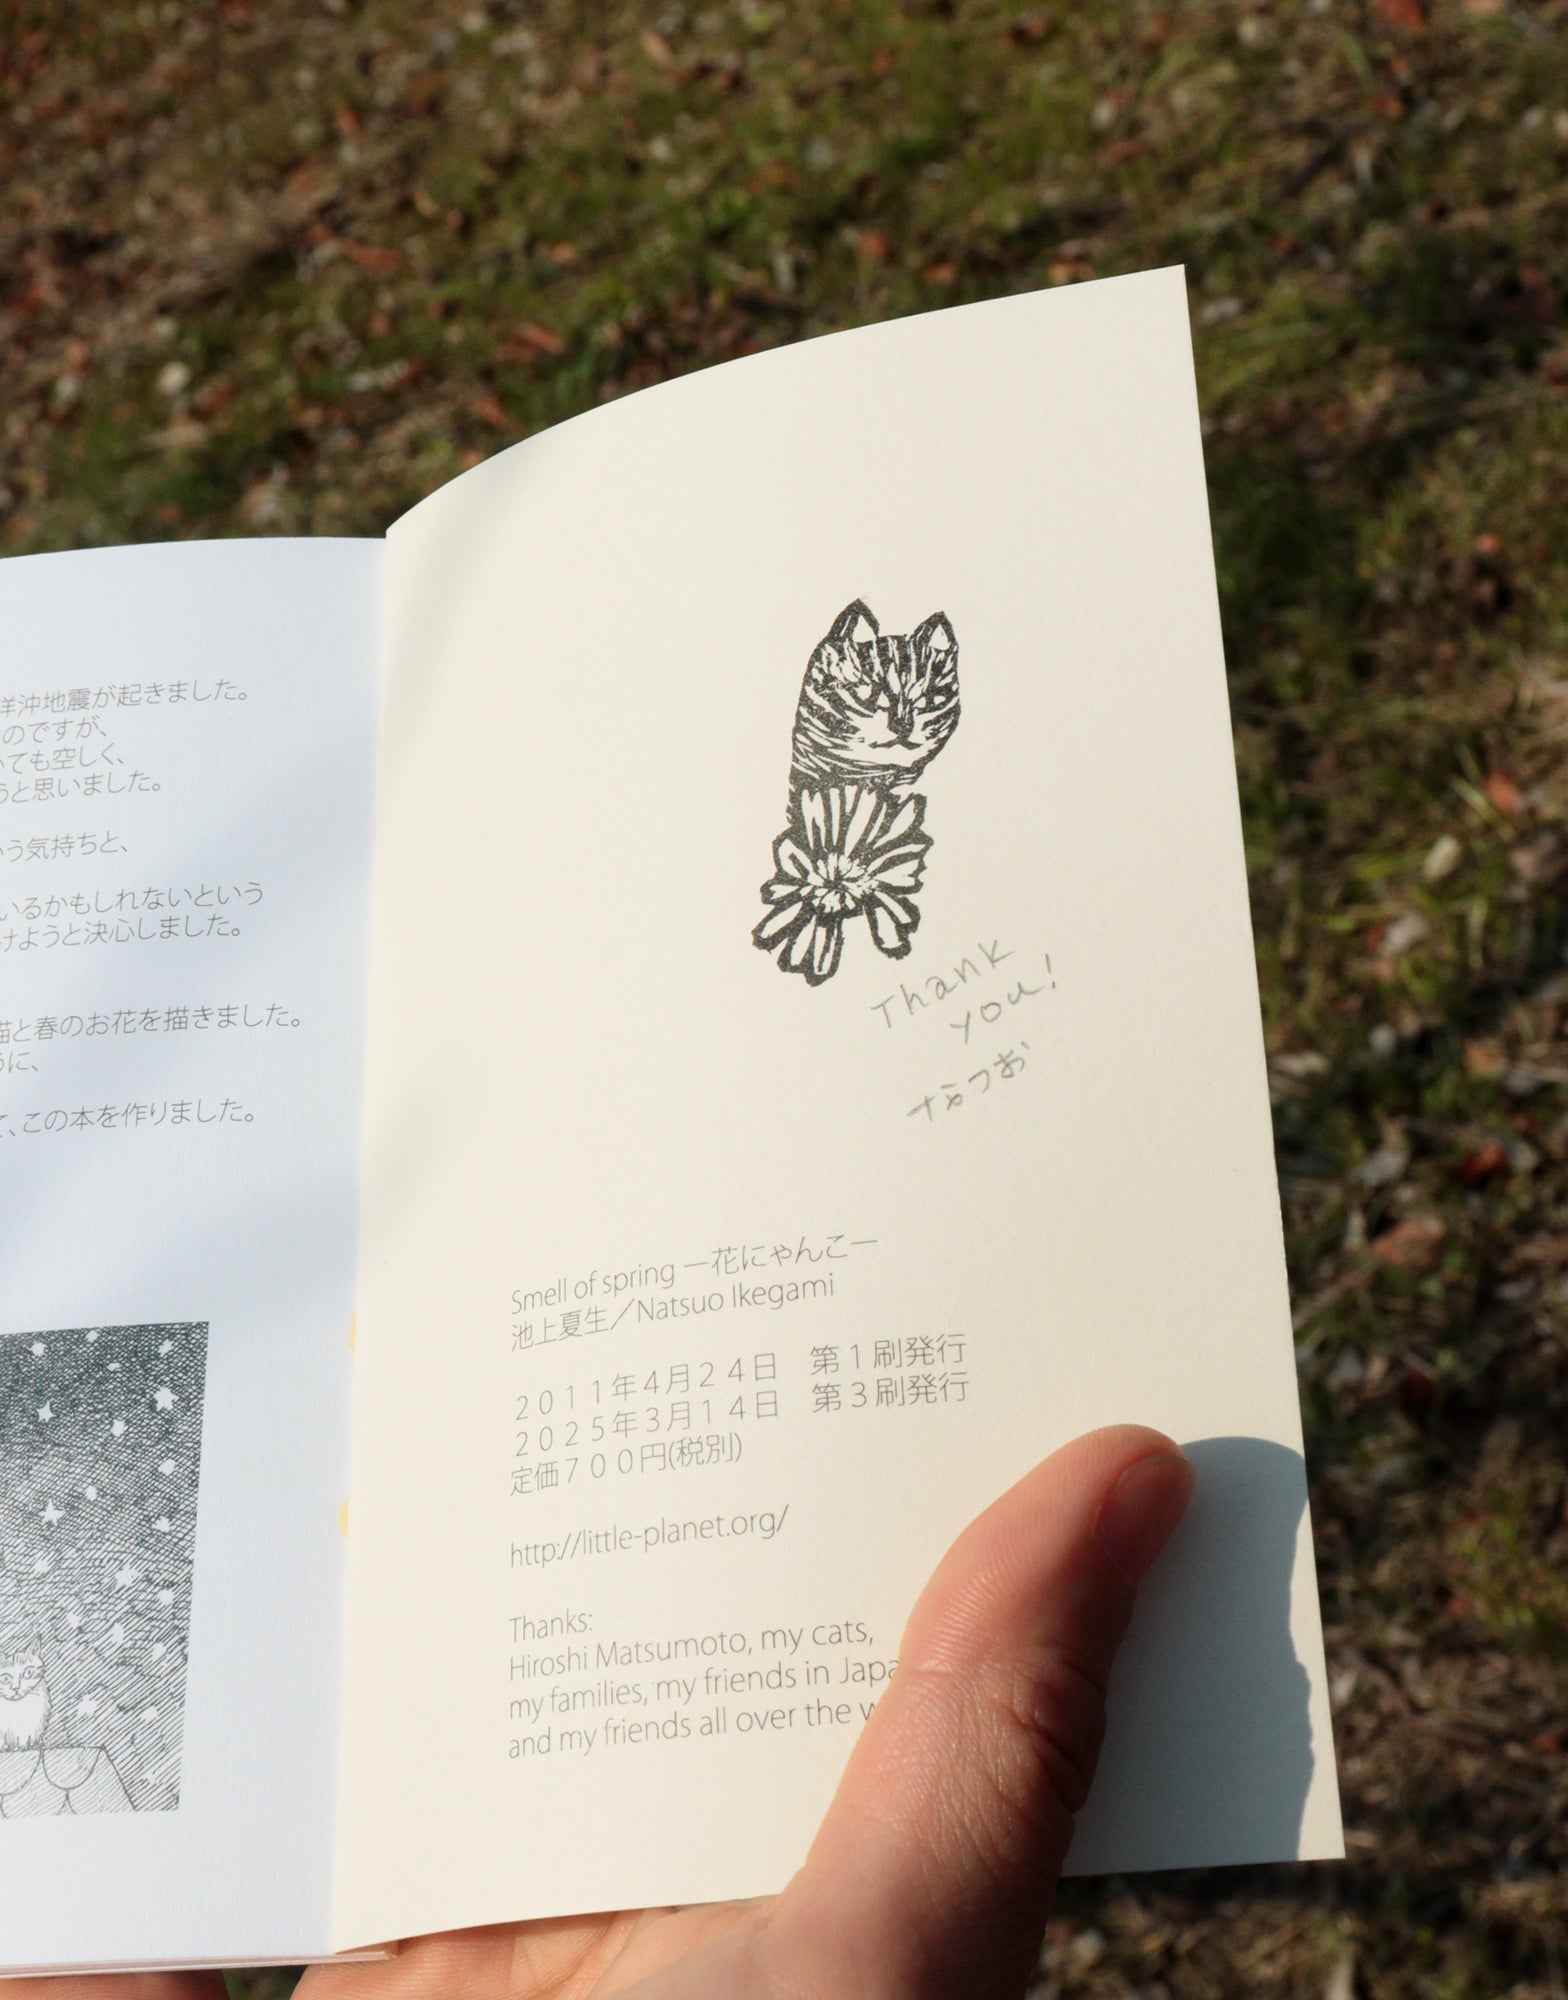 洋沖地震が起きました。
のですが、
いても空しく、
うと思いました。
いう気持ちと、
いるかもしれないという
けようと決心しました。
猫と春のお花を描きました。
うに、
て、この本を作りました。
Thank
you!
なつお
Smell of spring —花にゃんこ—
池上夏生／Natsuo Ikegami
２０１１年４月２４日　第１刷発行
２０２５年３月１４日　第３刷発行
定価７００円(税別)
http://little-planet.org/
Thanks:
Hiroshi Matsumoto, my cats,
my families, my friends in Japa
and my friends all over the w